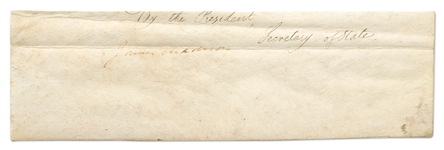 By the President,
Secretary of State.
James Madison